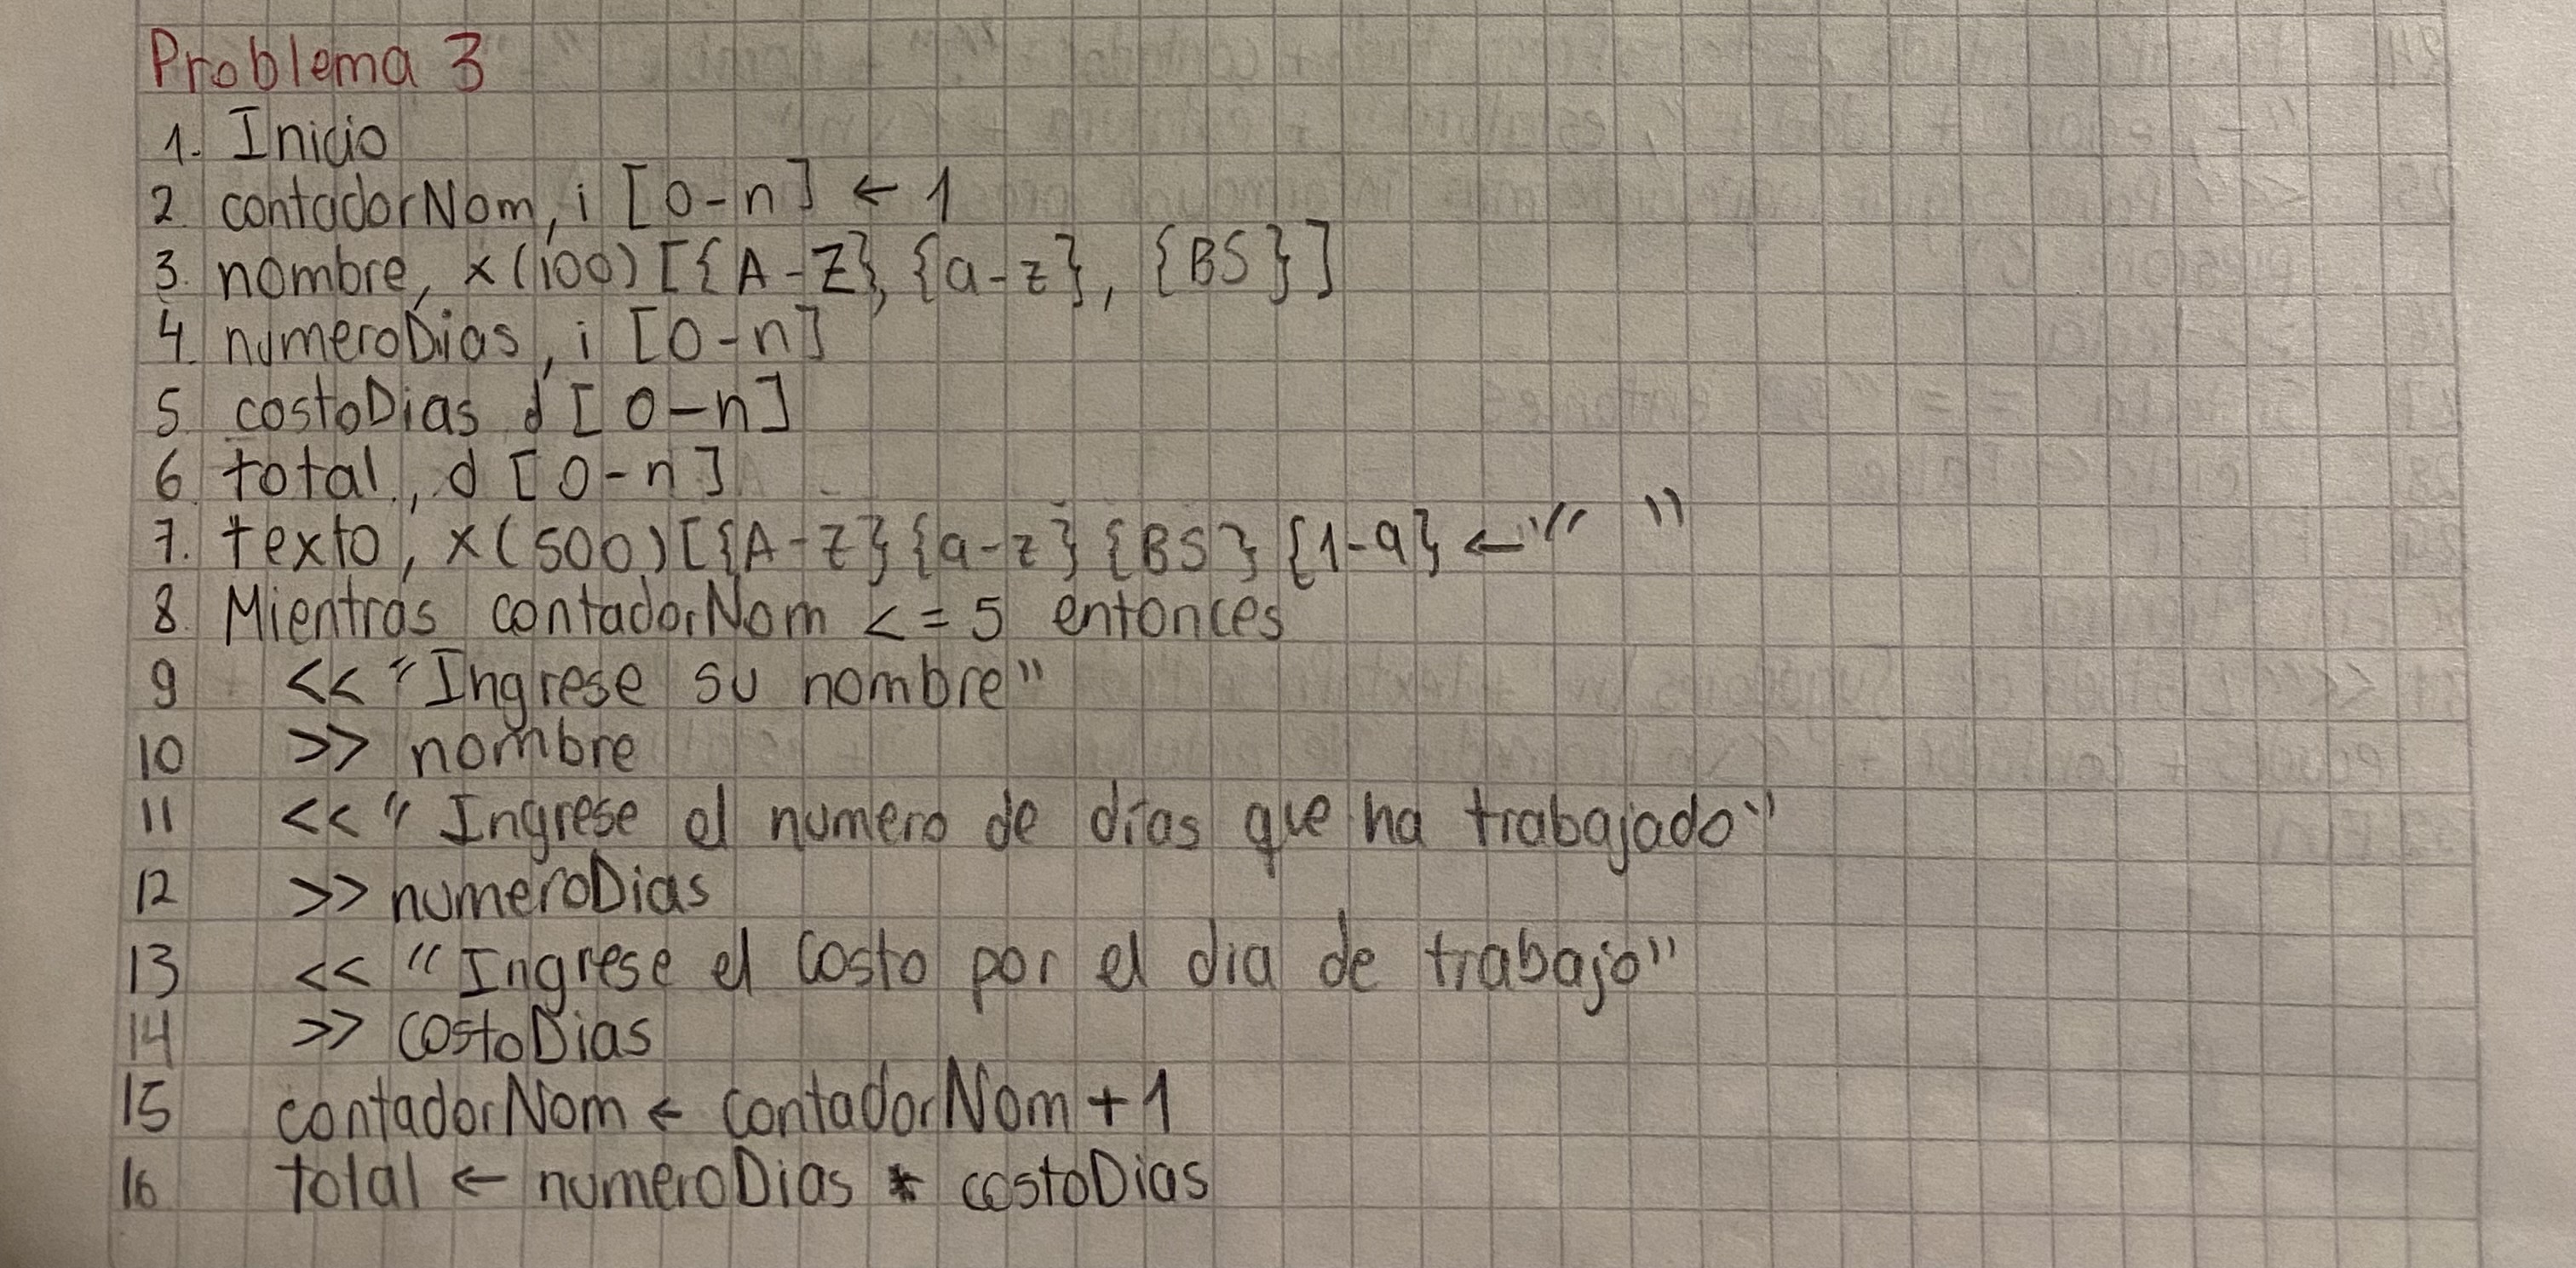 Problema 3
1. Inicio
2 contadorNom, i [0-n] ← 1
3. nombre, x(100)[{A-Z}, {a-z}, {BS}]
4. numeroDias, i [0-n]
5 costoDias d [0-n]
6. total, d [0-n]
7. texto, x(500)[{A-Z}{a-z}{BS}{1-9} ← " "
8. Mientras contadorNom <= 5 entonces
9 << "Ingrese su nombre"
10 >> nombre
11 << "Ingrese el numero de días que ha trabajado"
12 >> numeroDias
13 << "Ingrese el costo por el dia de trabajo"
14 >> costoDias
15 contadorNom ← contadorNom + 1
16 total ← numeroDias * costoDias